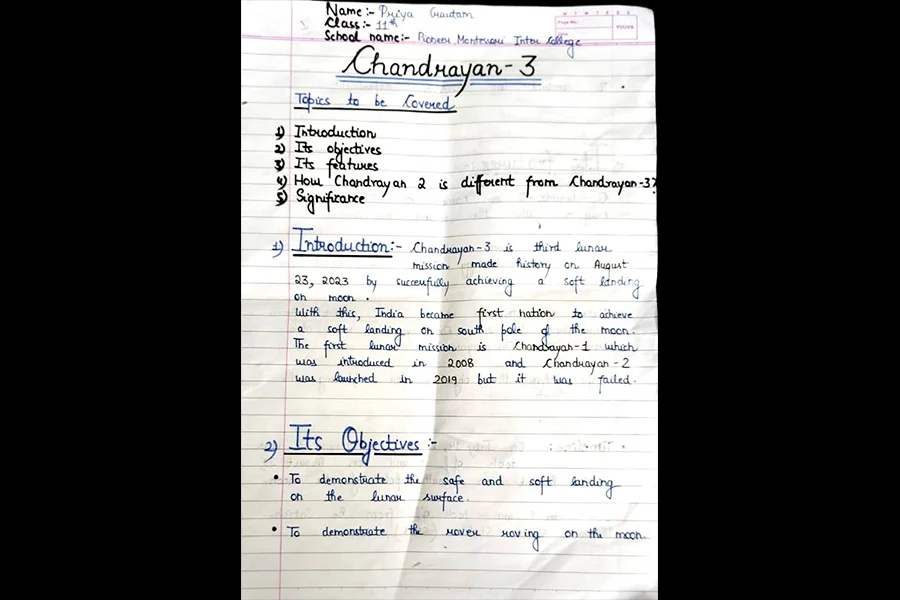 Name:- Priya Gautam
Class:- 11th
School name:- Pioneer Montessori Inter College
Chandrayan-3
Topics to be Covered
1) Introduction
2) Its objectives
3) Its features
4) How Chandrayan 2 is different from Chandrayan-3?
5) Significance
1) Introduction:- Chandrayan-3 is third lunar
mission made history on August
23, 2023 by succesfully achieving a soft landing
on moon.
With this, India became first nation to achieve
a soft landing on south pole of the moon.
The first lunar mission is Chandrayan-1 which
was introduced in 2008 and Chandrayan-2
was launched in 2019 but it was failed.
2) Its Objectives :-
• To demonstrate the safe and soft landing
on the lunar surface.
• To demonstrate the rover roving on the moon.